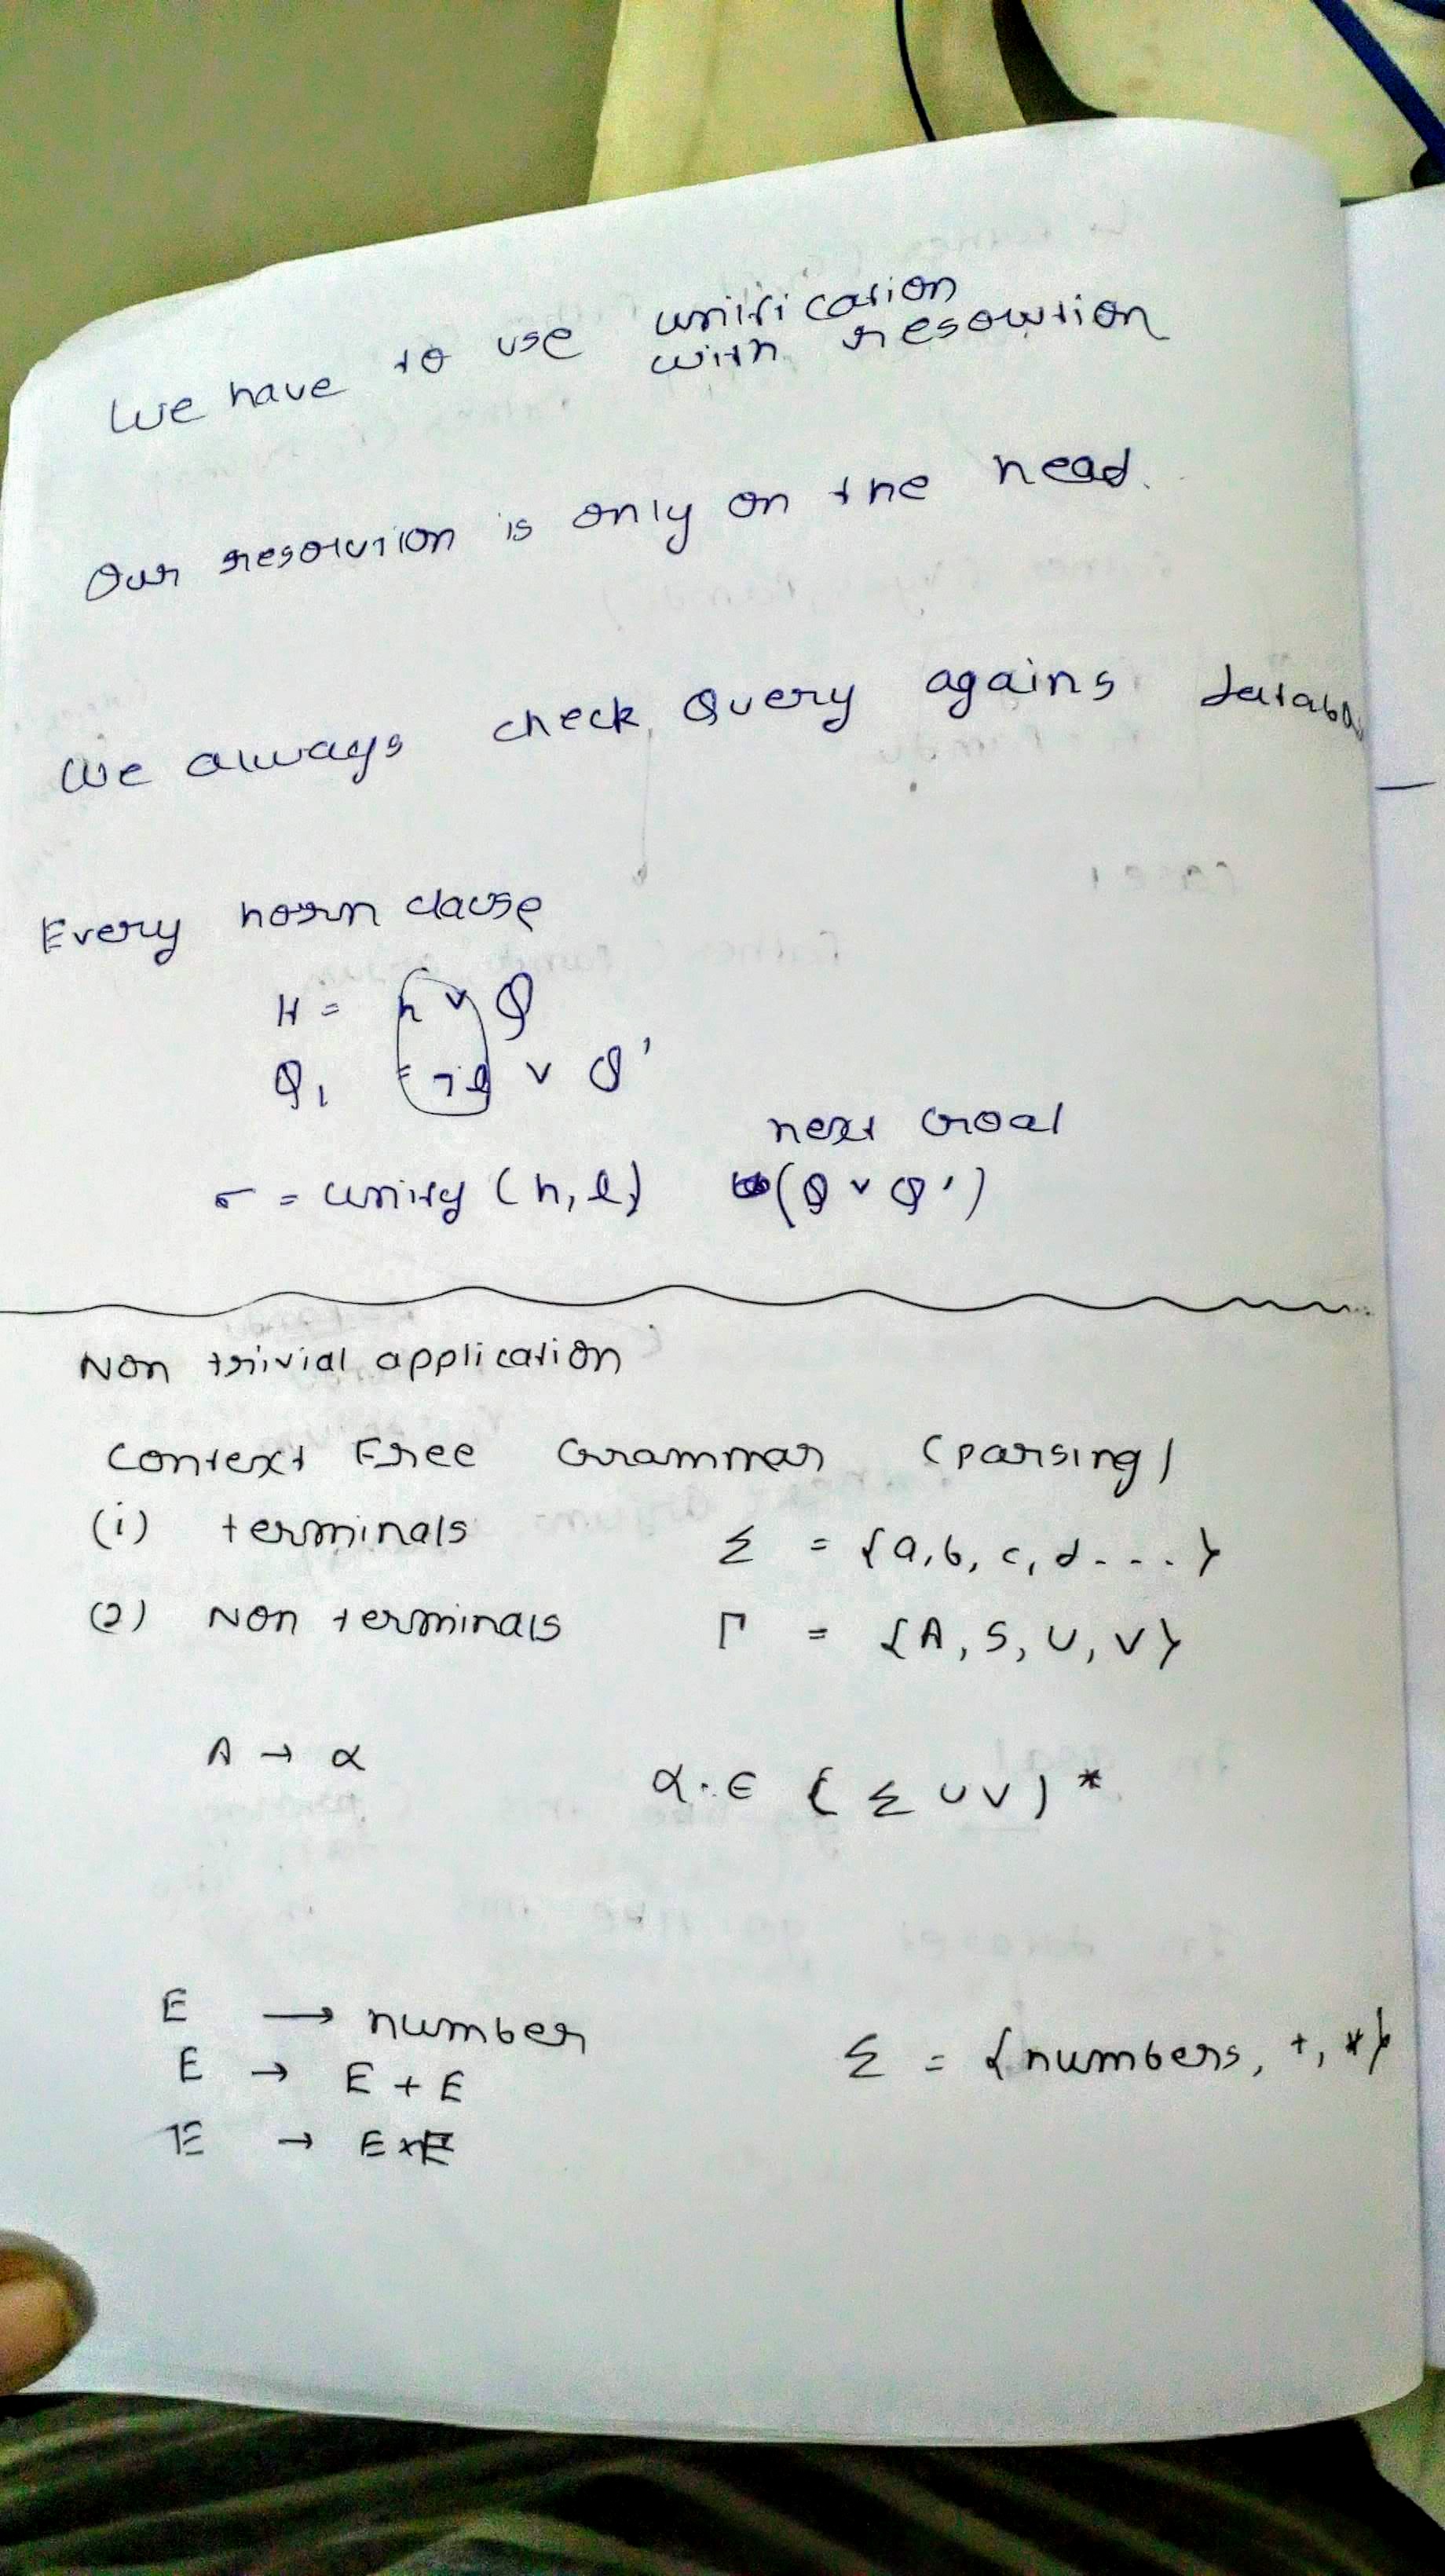 We have to use unification
with resolution
Our resolution is only on the head.
We always check Query agains databa
Every horn clause
H = h ∨ Q
Q₁ = ¬l ∨ Q'
next Goal
σ = unify (h, l) (Q ∨ Q')
Non trivial application
Context Free Grammar (parsing)
(i) terminals Σ = {a, b, c, d - - - }
(2) Non terminals Γ = {A, S, U, V}
A → α α . ∈ (Σ ∪ V)*
E → number
E → E + E Σ = {numbers, +, *}
E → E * E